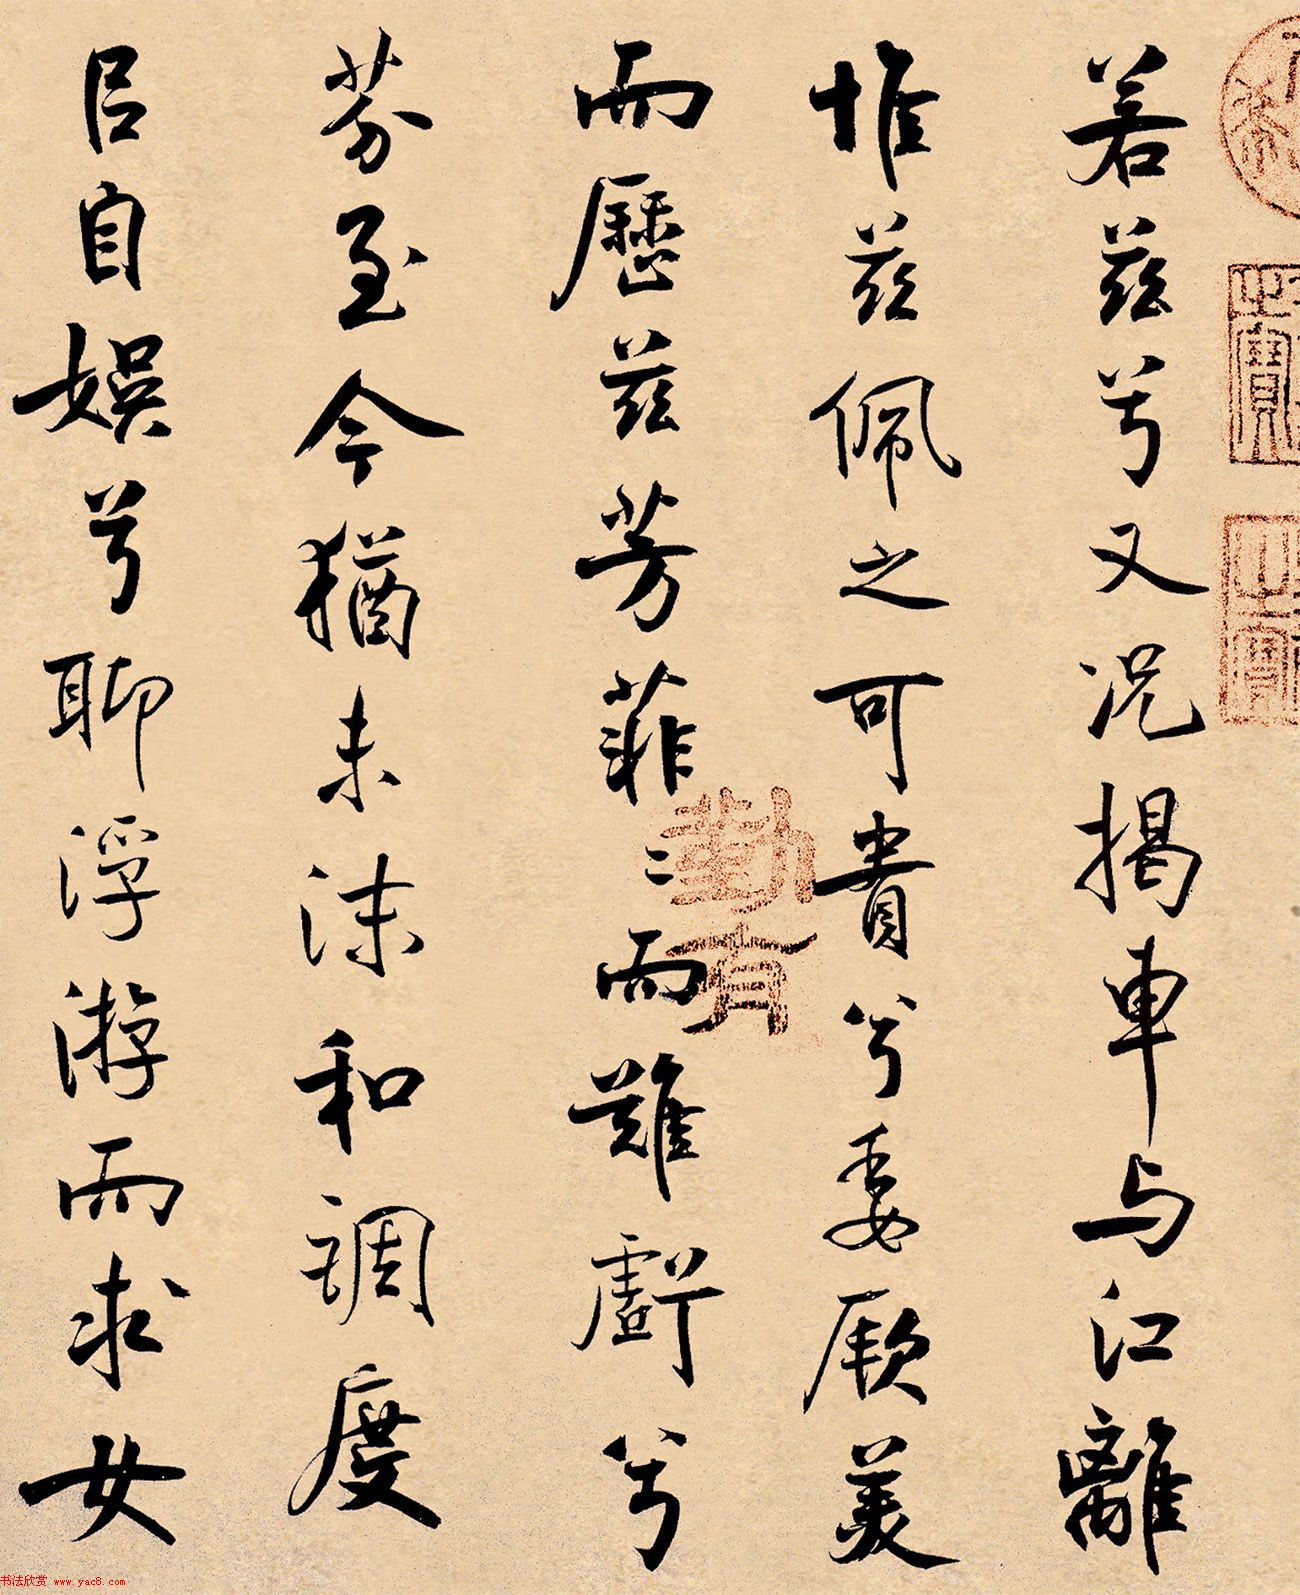 若兹兮又况揭車与江離
惟兹佩之可貴兮委厥美
而歷兹芳菲〻而難虧兮
芬至今猶未沬和調度
㠯自娱兮聊浮游而求女
之寶
勤有
书法欣赏 www.yac8.com